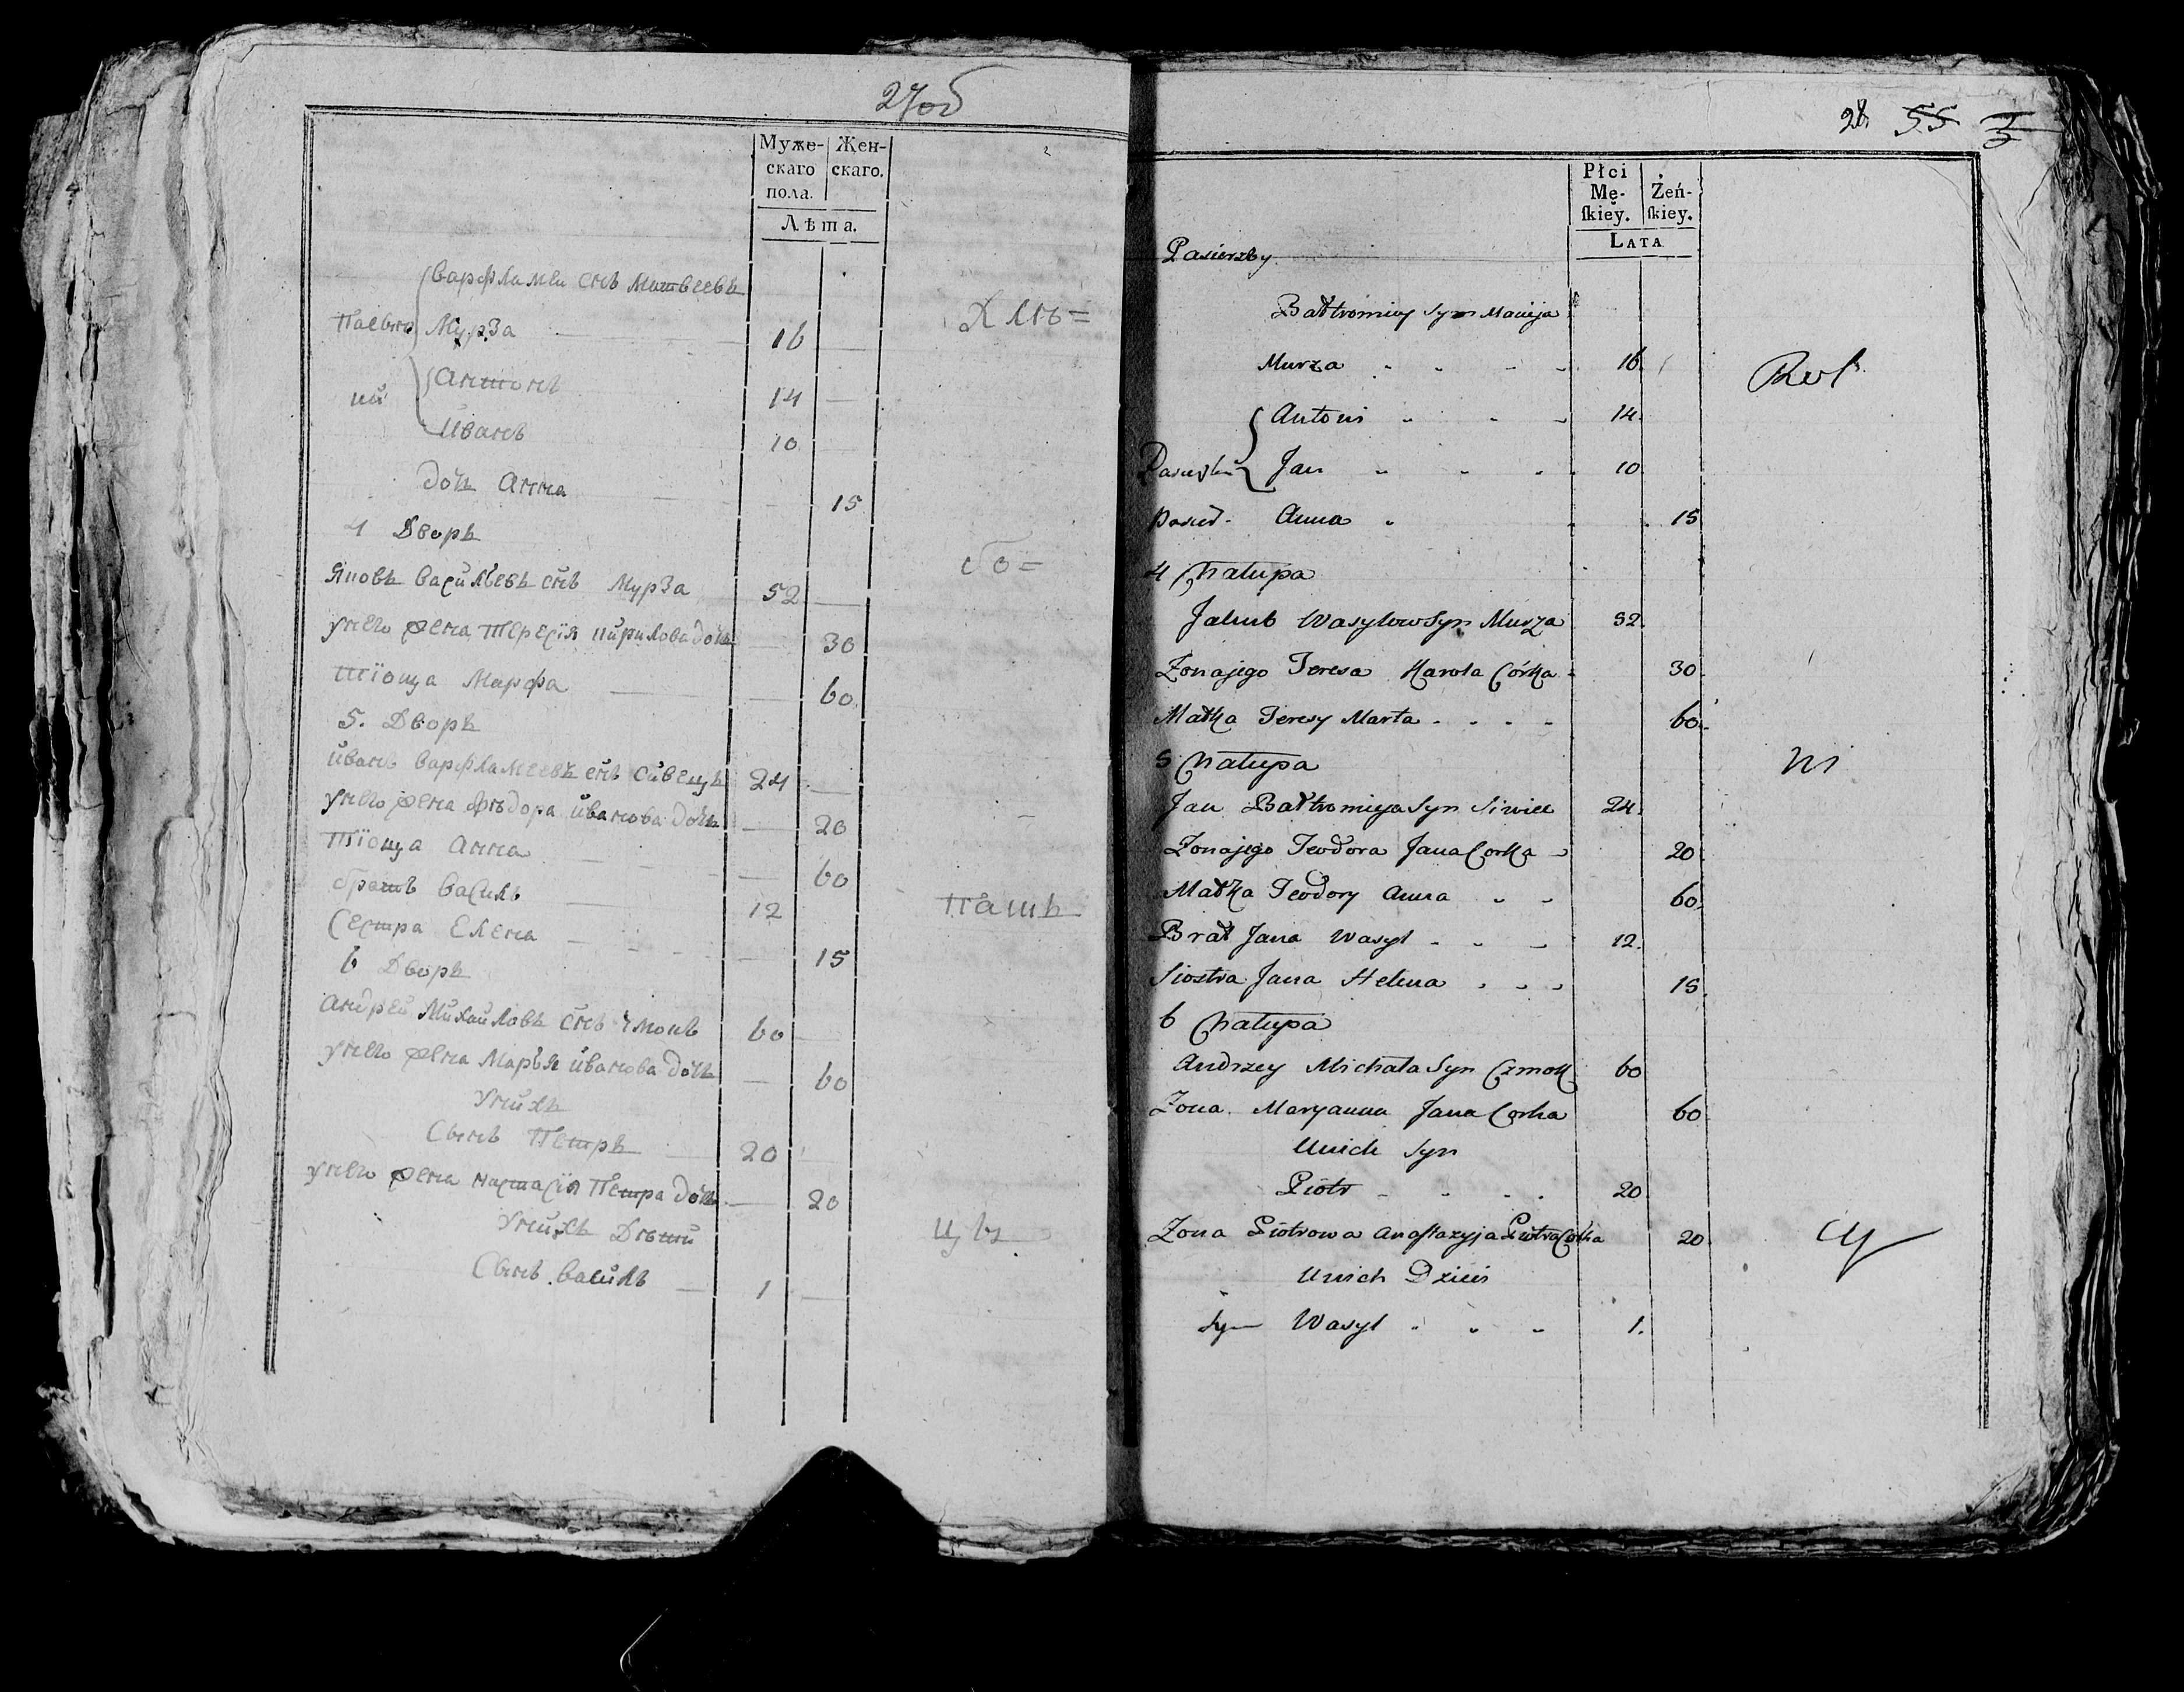 27об
Муже- Жен-
скаго скаго.
пола.
Лѣта.
Варфламѣи снъ Митвеевъ
Мурза 16
Антонъ 14
Иванъ 10
дочь Анна 15
4 Дворъ
Яковъ Васильевъ снъ Мурза 52
унего жена Тересія Кирилова дочь 30
тіоща Марфа 60
5. Дворъ
Иванъ Варфламеевъ снъ Сивецъ 24
унего жена Фѣдора Иванова дочь 20
Тіоща Анна 60
братъ Василь 12
Сестра Елена 15
6 Дворъ
Андрей Михайловъ снъ Чмокъ 60
унего жена Марья Иванова дочь 60
Унихъ
Сынъ Петръ 20
унего жена Настасія Петра дочь 20
Унихъ Дѣти
Сынъ Василь 1
28. 55
Płci
Mę- Żeń-
ſkiey. ſkiey.
LATA
Pasierzby
Bałtromiey Syn Macieja
Murza 16
Antoni 14.
Jan 10
Anna 15
4 Chałupa
Jakub Wasylow Syn Murza 52.
Zona jego Teresa Karola Córka 30
Matka Teresy Marta 60.
5 Chałupa
Jan Bałtromieja Syn Siwiec 24.
Zona jego Teodora Jana Corka 20
Matka Teodory Anna 60
Brat Jana Wasyl 12.
Siostra Jana Helena 15.
6 Chałupa
Andrzey Michała Syn Czmok 60
Zona Maryanna Jana Corka 60
Unich Syn
Piotr 20
Zona Piotrowa Anaſtazyja Piotra Córka 20
Unich Dzieci
Syn Wasyl 1.